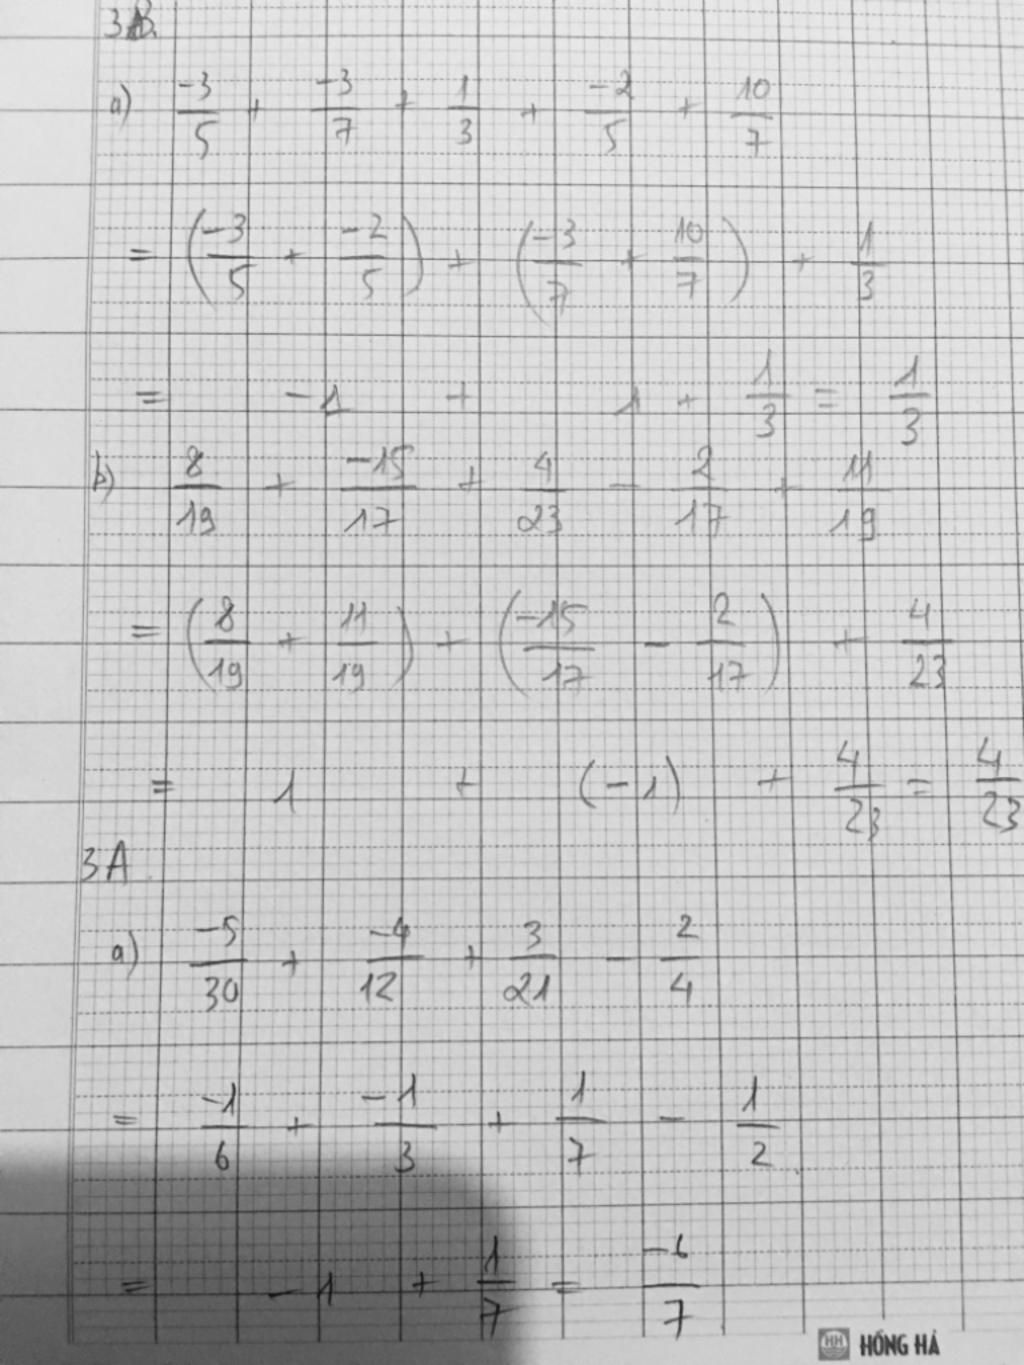 3B.
a) -3/5 + -3/7 + 1/3 + -2/5 + 10/7
= (-3/5 + -2/5) + (-3/7 + 10/7) + 1/3
= -1 + 1 + 1/3 = 1/3
b) 8/19 + -15/17 + 4/23 - 2/17 + 11/19
= (8/19 + 11/19) + (-15/17 - 2/17) + 4/23
= 1 + (-1) + 4/23 = 4/23
3A
a) -5/30 + -4/12 + 3/21 - 2/4
= -1/6 + -1/3 + 1/7 - 1/2
= -1 + 1/7 = -6/7
HH HỒNG HÀ